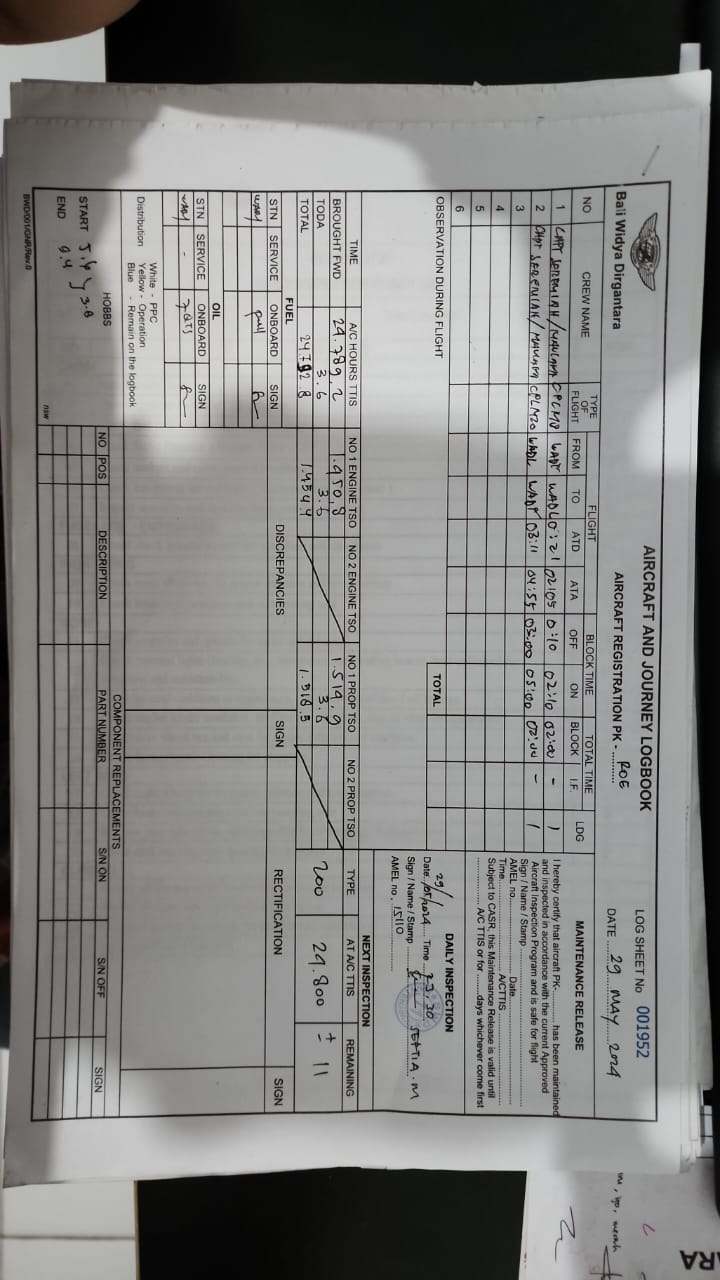 AIRCRAFT AND JOURNEY LOGBOOK
LOG SHEET No 001952
Bali Widya Dirgantara
AIRCRAFT REGISTRATION PK - ROE
DATE 29 MAY 2024
NO CREW NAME TYPE OF FLIGHT FLIGHT FROM TO ATD ATA BLOCK TIME OFF ON TOTAL TIME BLOCK I.F. LDG
1 CAPT JEREMIAH / MAULANA WADL 02:05 0:10 02:10 02:00 - 1
2 CAPT JEREMIAH / MAULANA WADL 03:11 04:55 03:00 05:00 02:00 - 1
3
4
5
6
TOTAL
OBSERVATION DURING FLIGHT
MAINTENANCE RELEASE
I hereby certify that aircraft PK-............ has been maintained
and inspected in accordance with the current Approved
Aircraft Inspection Program and is safe for flight
Sign / Name / Stamp
AMEL no. Date
Time A/CTTIS
Subject to CASR, this Maintenance Release is valid until
A/C TTIS or for ........days whichever come first
DAILY INSPECTION
Date. 29/05/2024 Time 23:30
Sign / Name / Stamp SETTIA. M
AMEL no. 15110
TIME A/C HOURS TTIS NO 1 ENGINE TSO NO 2 ENGINE TSO NO 1 PROP TSO NO 2 PROP TSO
BROUGHT FWD 24.789,2 1.450,8 1.514,9
TODA 3.6 3.6 3.6
TOTAL 24792.8 1.454.4 1.518.5
NEXT INSPECTION
TYPE AT A/C TTIS REMAINING
200 24.800 ± 11
FUEL
STN SERVICE ONBOARD SIGN
full
OIL
STN SERVICE ONBOARD SIGN
- 7QTS
DISCREPANCIES SIGN RECTIFICATION SIGN
Distribution White - PPC
Yellow - Operation
Blue - Remain on the logbook
COMPONENT REPLACEMENTS
NO POS DESCRIPTION PART NUMBER S/N ON S/N OFF SIGN
HOBBS
START 5.4
END 9.4
3.8
BWD/001/GNR/Rev.0
nsw
ARA
merah